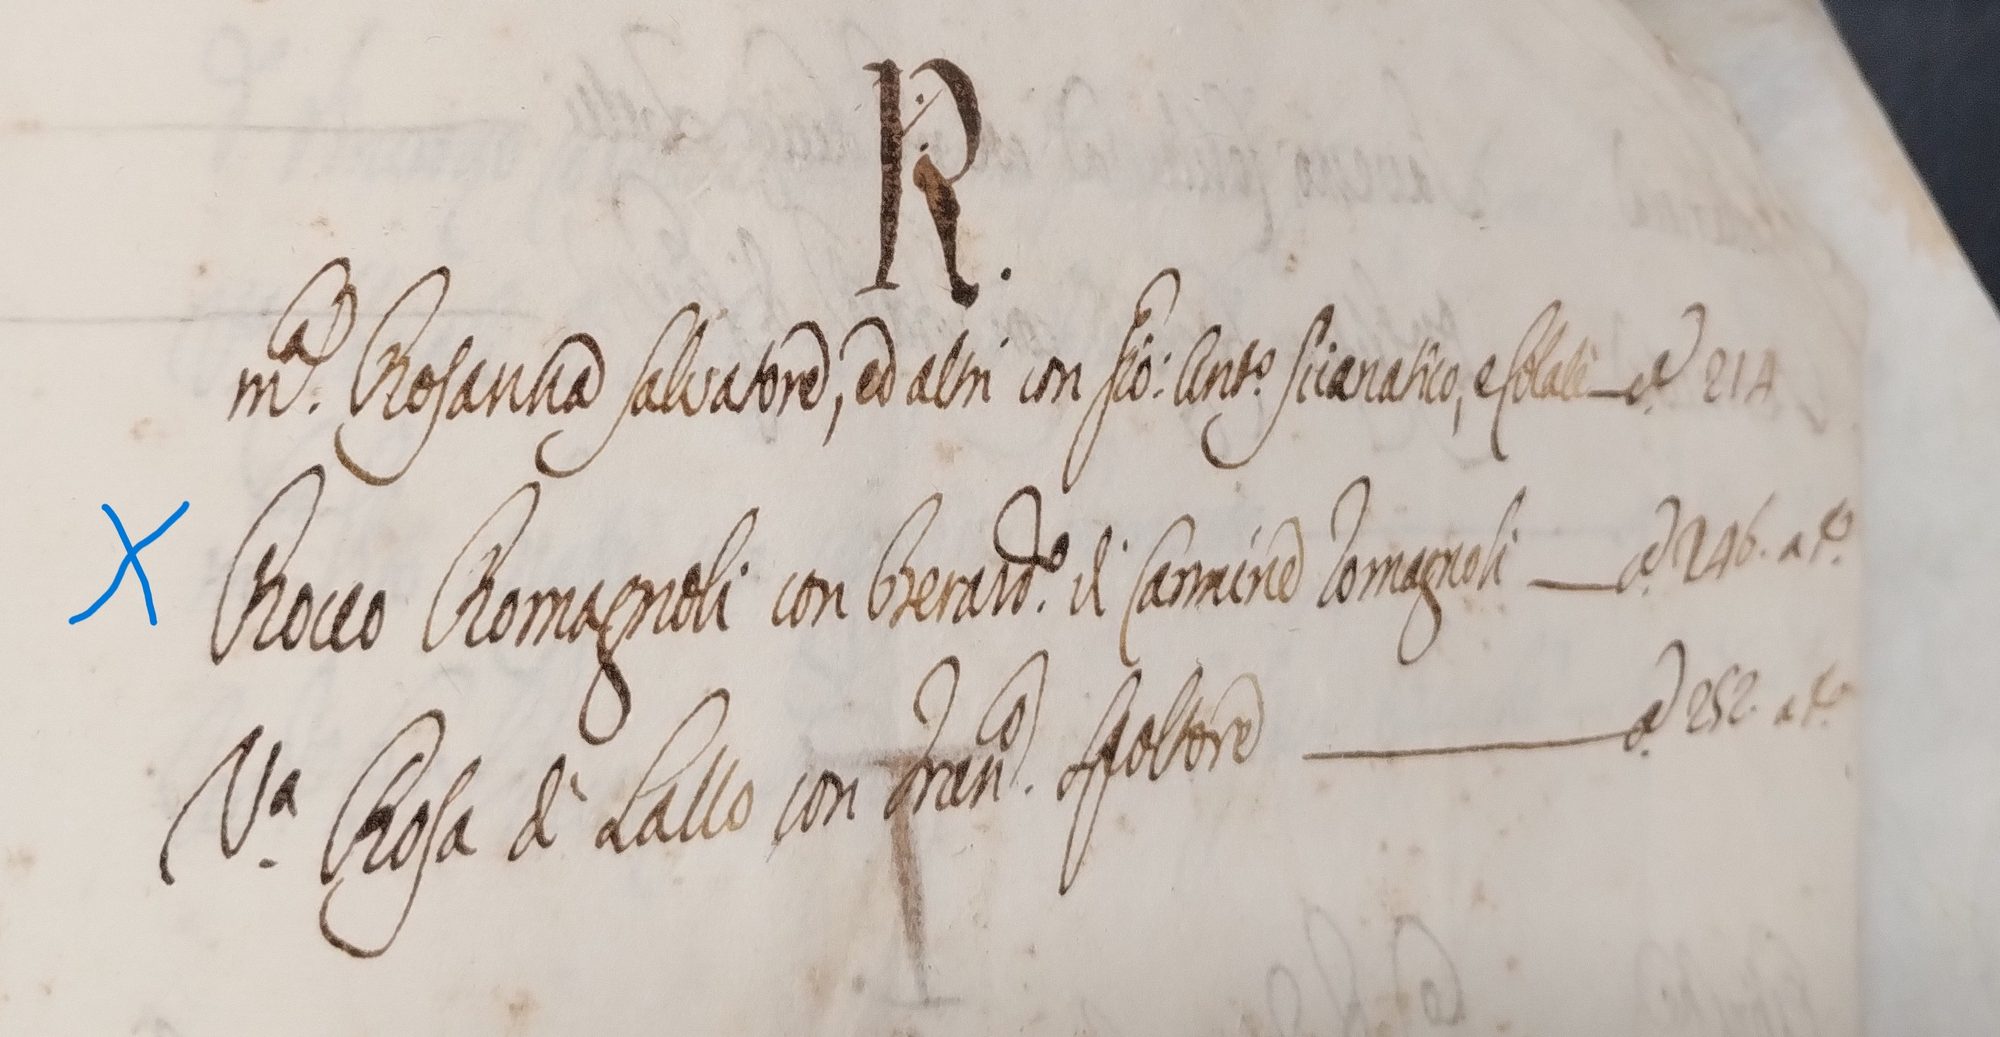 R.
m.ª Rosanna Salvatore, ed altri con Gio: Ant.º Scianatico, e - a 214
Rocco Romagnoli con Berard.º di Carmine Romagnoli — a 246. a t.º
V.ª Rosa di Lallo con Fran.º Spoltore — a 252. a t.º